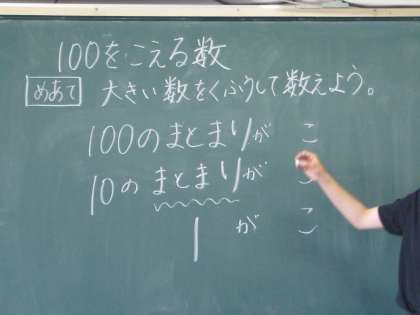 100をこえる数
めあて 大きい数をくふうして数えよう。
100のまとまりが こ
10のまとまりが こ
1が こ